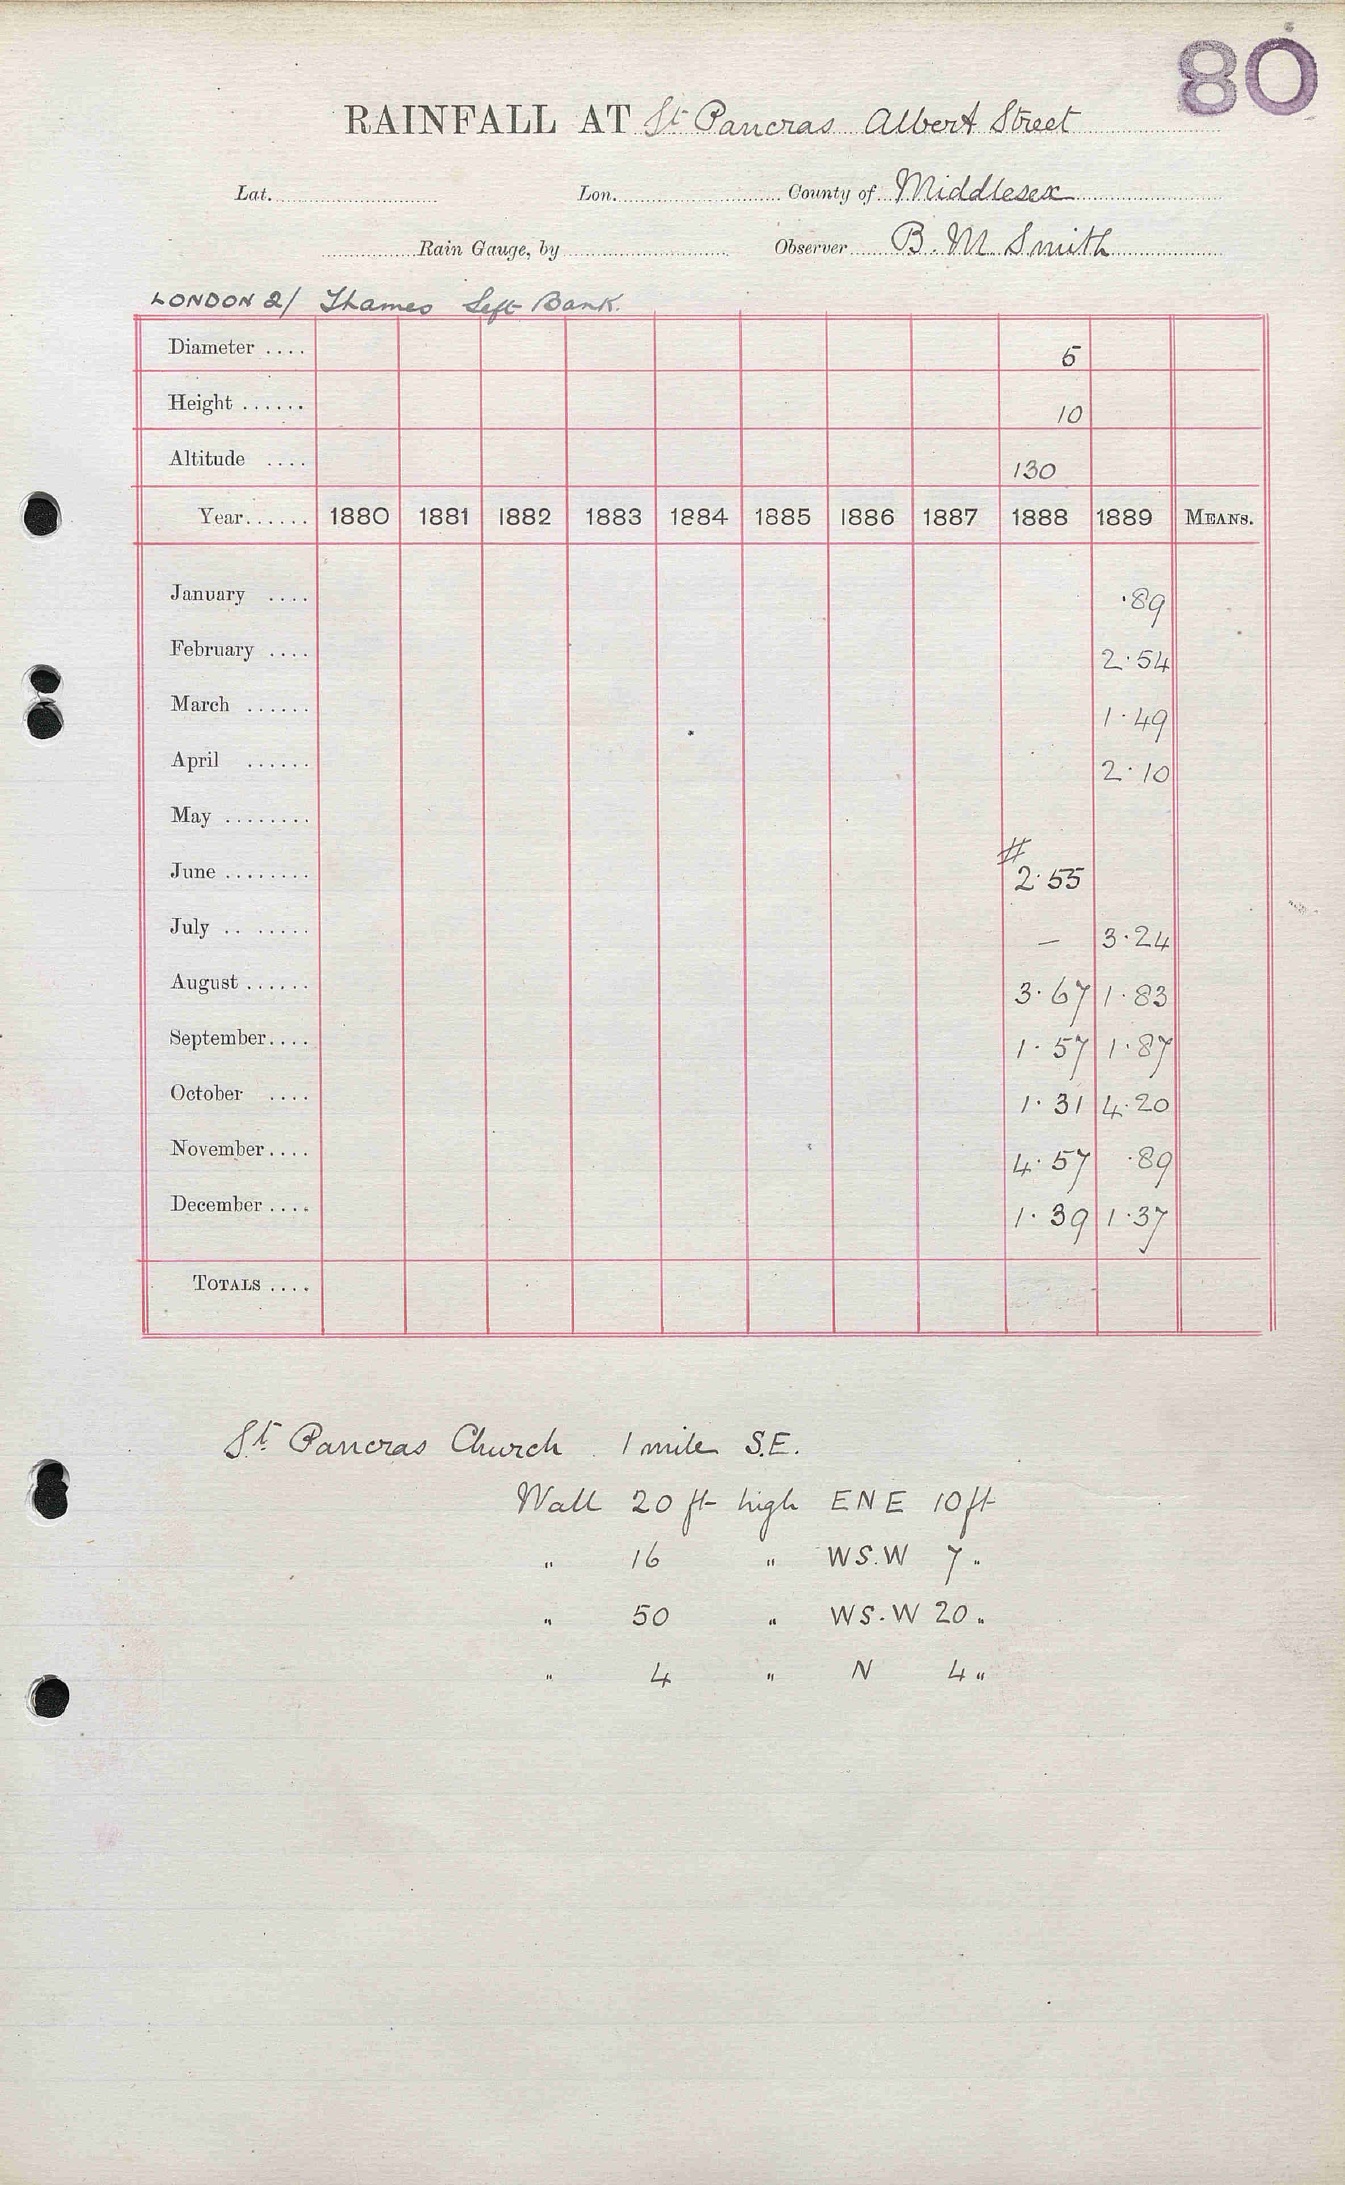 80
RAINFALL AT St Pancras Albert Street
Lat. Lon. County of Middlesex
Rain Gauge, by Observer B. M. Smith
LONDON 2/ Thames Left Bank.
Diameter .... 5
Height ...... 10
Altitude .... 130
Year...... 1880 1881 1882 1883 1884 1885 1886 1887 1888 1889 MEANS.
January .... ·89
February .... 2·54
March ...... 1·49
April ...... 2·10
May ........
#
June ........ 2·55
July .. ...... — 3·24
August ...... 3·67 1·83
September.... 1·57 1·87
October .... 1·31 4·20
November.... 4·57 ·89
December .... 1·39 1·37
TOTALS ....
St. Pancras Church 1 mile S.E.
Wall 20 ft high ENE 10 ft
" 16 " WS.W 7 "
" 50 " WS.W 20 "
" 4 " N 4 "